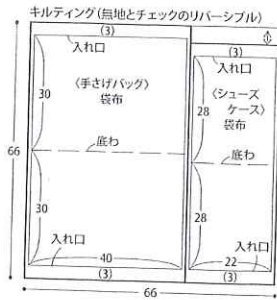 キルティング(無地とチェックのリバーシブル)
(3)
入れ口
30
〈手さげバッグ〉
袋布
底わ
66
30
入れ口
40
(3)
(3)
入れ口
28
〈シューズ
ケース〉
袋布
底わ
28
入れ口
22
(3)
66